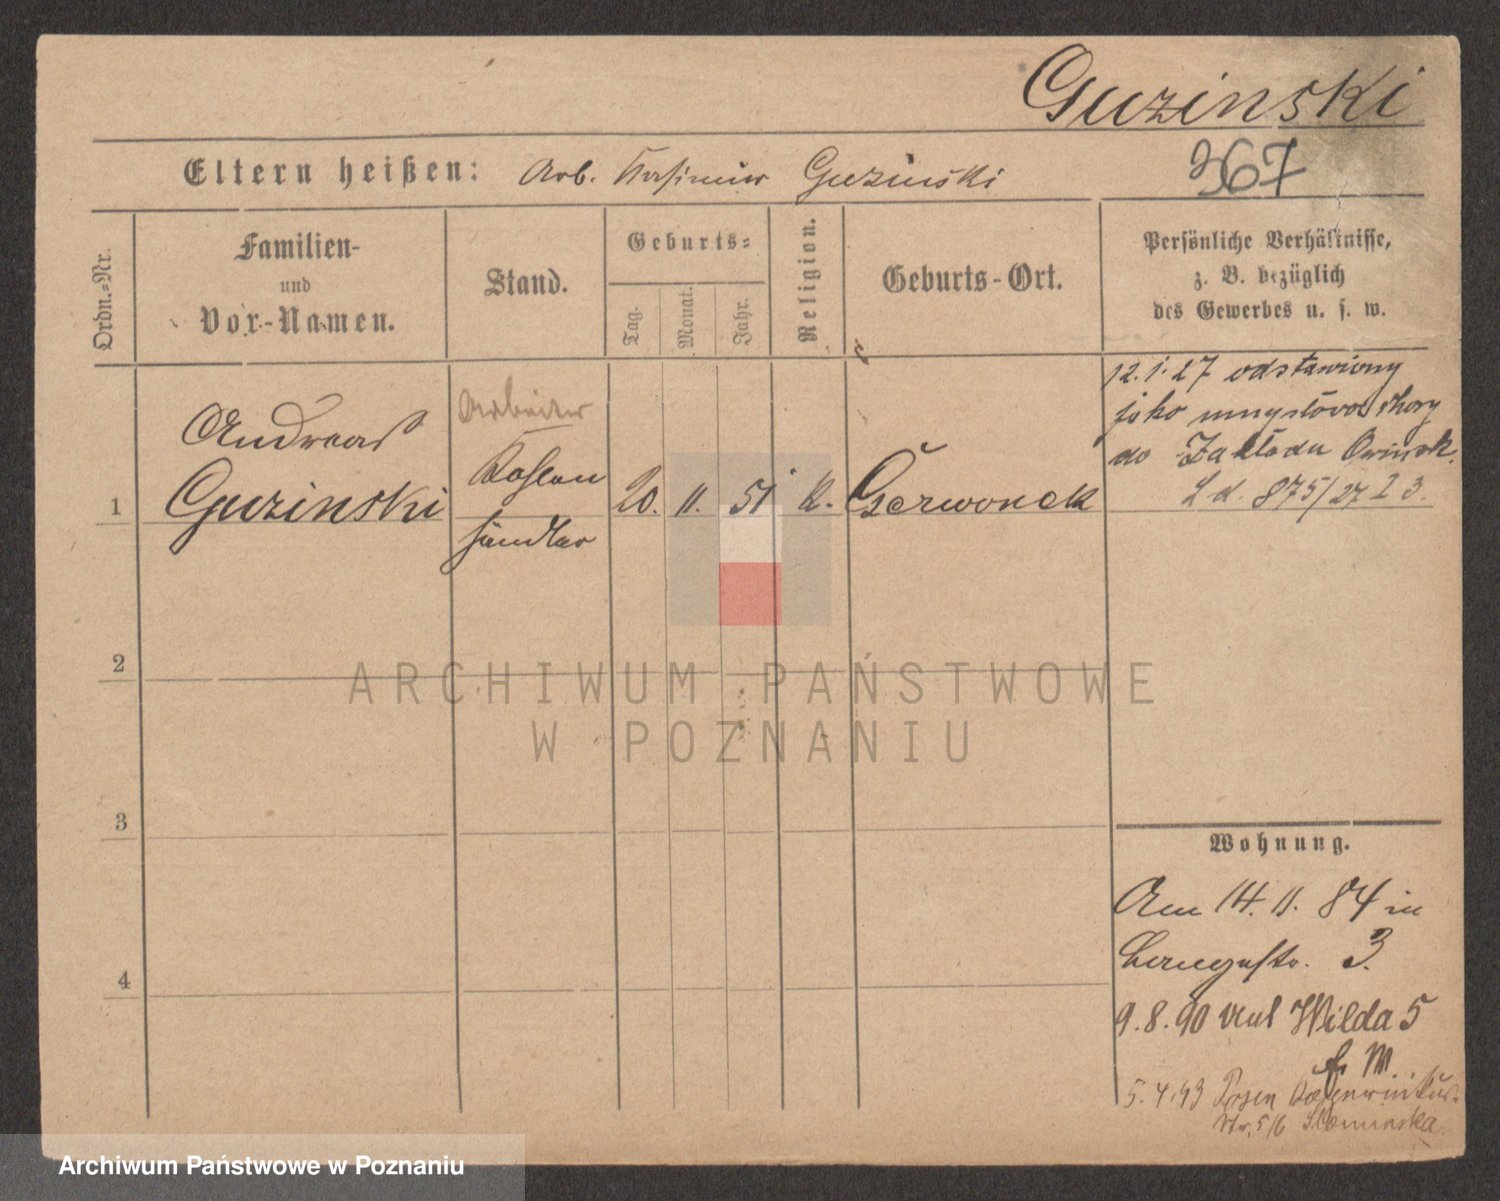 Guzinski
367
Eltern heißen: Arb. Kasimir Guzinski
Ordn.-Nr.
Familien-
und
Vor-Namen.
Stand.
Geburts-
Tag.
Monat.
Jahr.
Religion.
Geburts-Ort.
Persönliche Verhältnisse,
z. B. bezüglich
des Gewerbes u. s. w.
12.1.27 odstawiony
jako umysłowo chory
do Zakładu Owinsk.
L d. 875/27 I 3.
Andreas
Guzinski
Arbeiter
Kohlen
händler
1
20. 11. 51 k. Czerwonek
2
3
4
Wohnung.
Am 14. 11. 84 in
Langestr. 3.
9.8.90 Wilda 5
5.4.93 Posen
Str. 5/6
ARCHIWUM PAŃSTWOWE
W POZNANIU
Archiwum Państwowe w Poznaniu